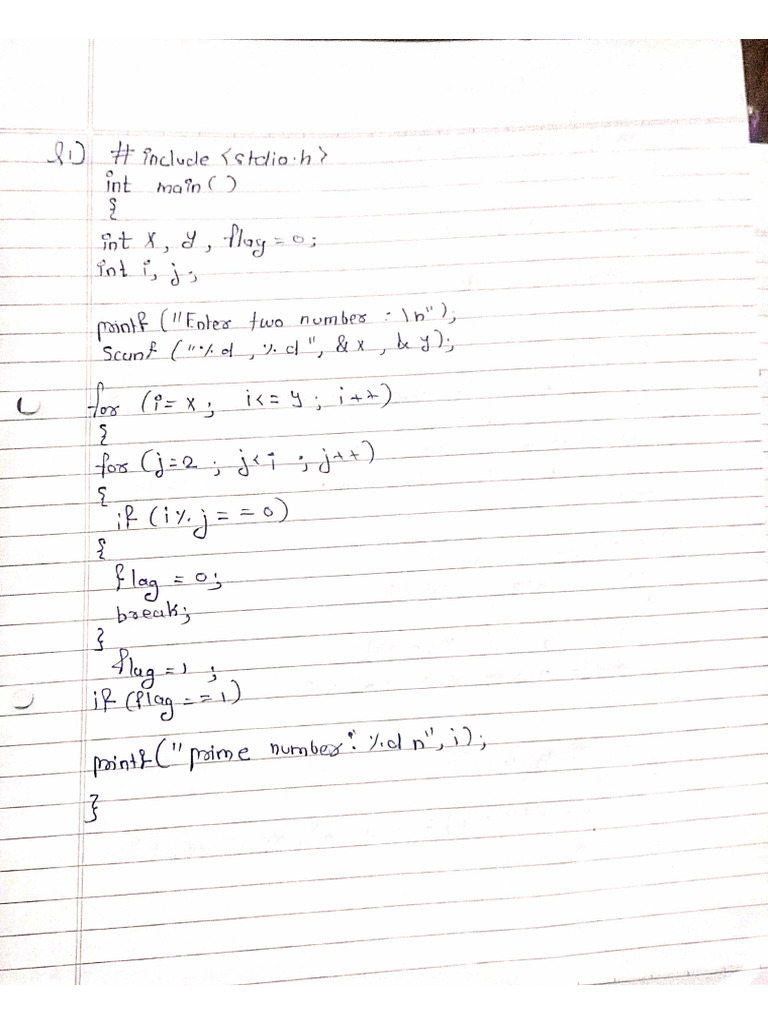 Q1) # include <stdio.h>
int main()
{
int x, y, flag = 0;
int i, j;
printf ("Enter two number : \n");
Scanf ("%d, %d", &x, &y);
for (i = x; i <= y; i++)
{
for (j=2 ; j<i ; j++)
{
if (i % j == 0)
{
flag = 0;
break;
}
flag = 1 ;
if (flag == 1)
printf("prime number: %d n", i);
}